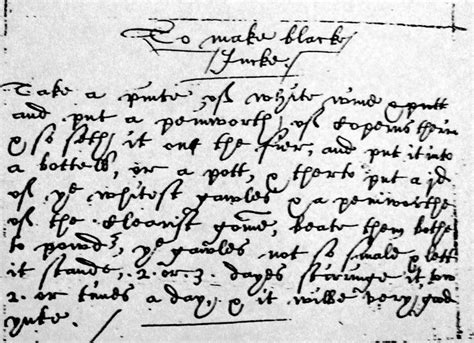 To make blacke
Incke.
Take a pinte of white wine & putt
and put a peniworth of coperis therin
& so seth it on the fier, and put it into
a bottell, or a pott, & therto put a
of ye whitest gawles & a peniworthe
of the clearist gome, beate them bothe
to powder, ye gawles not so smale & lett
it stande, 2. or. 3. dayes starringe it, two
2. or times a day, & it wille very good
ynke.